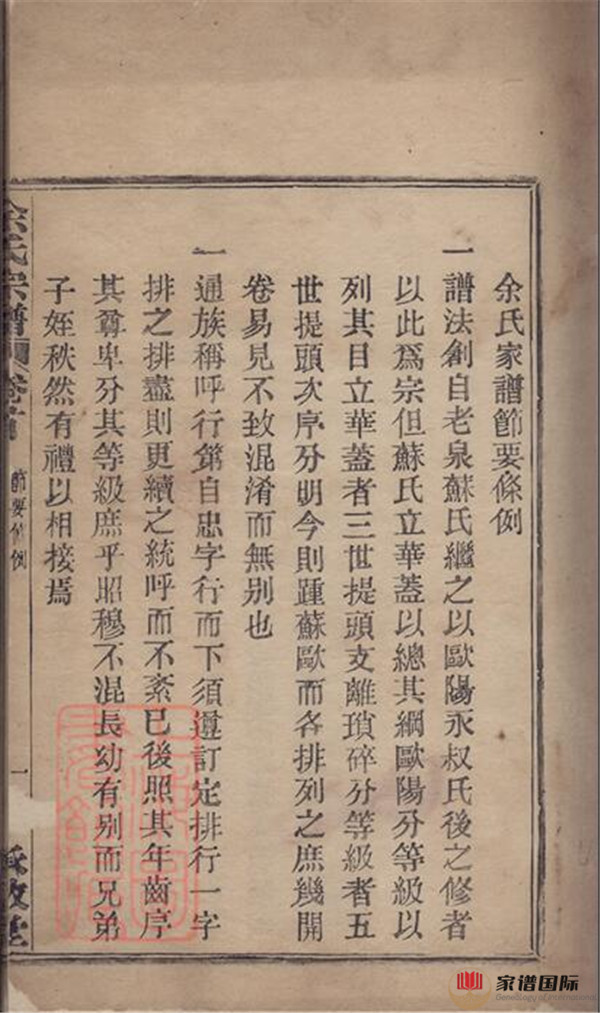 余氏家譜節要條例
一譜法創自老泉蘇氏繼之以歐陽永叔氏後之修者
以此爲宗但蘇氏立華蓋以總其綱歐陽分等級以
列其目立華蓋者三世提頭支離瑣碎分等級者五
世提頭次序分明今則踵蘇歐而各排列之庶幾開
卷易見不致混淆而無别也
一通族稱呼行第自忠字行而下須遵訂定排行一字
排之排盡則更續之統呼而不紊已後照其年齒序
其尊卑分其等級庶乎昭穆不混長幼有别而兄弟
子姪秩然有禮以相接焉
余氏宗譜 卷首 節要條例 一 敘堂
家谱国际
Genealogy of International